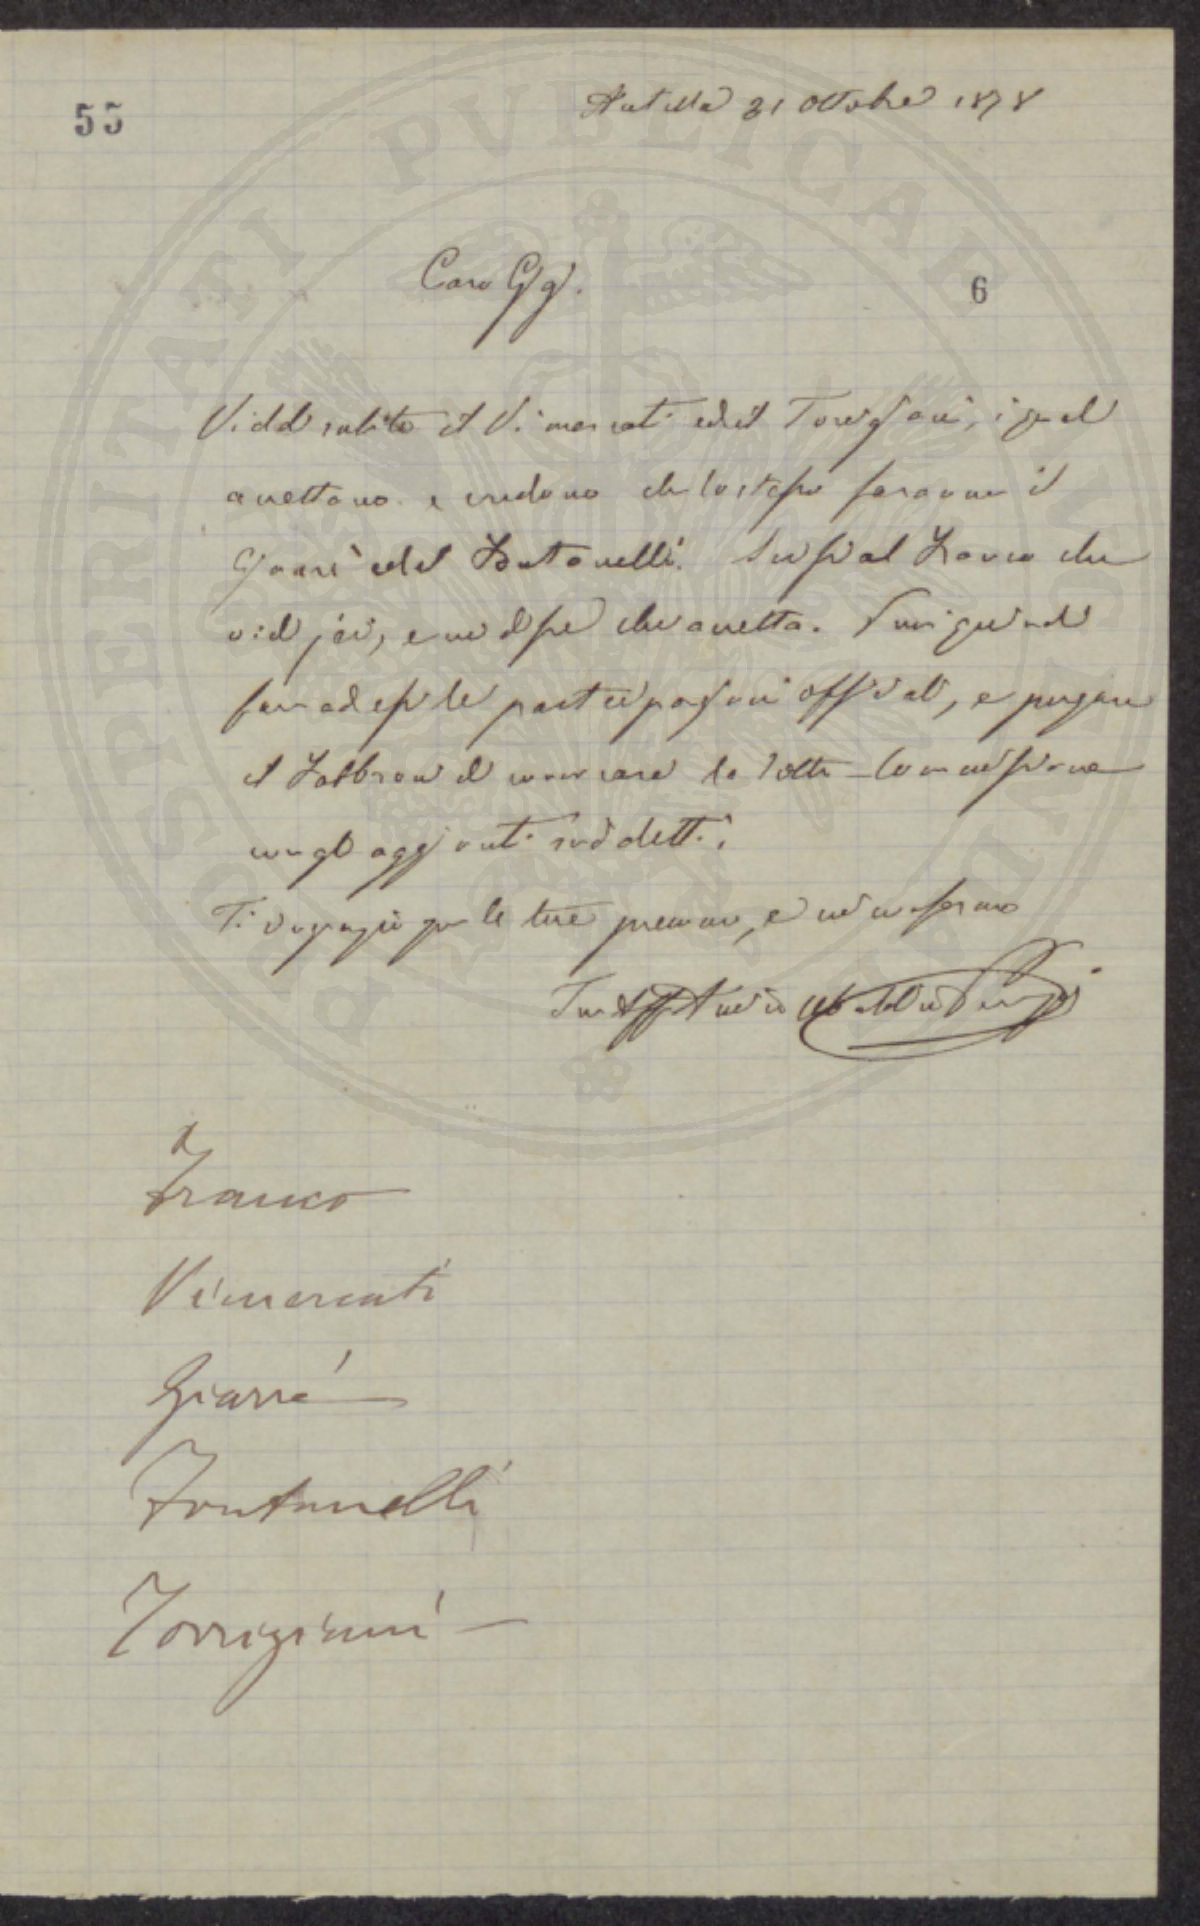 55
Antella 31 Ottobre 1878
Caro Gigi.
6
Viddi subito il Vimercati ed il Torrigiani, i quali
accettano e credono che lo stesso faranno il
Giarrè ed il Fontanelli. Scrissi al Franco che
vidi jeri, e mi disse che accetta. Puoi quindi
fare ad essi le partecipazioni officiali, e pregare
il Fabbroni di convocare la Sotto-Commissione
con gli aggiunti suddetti.
Ti ringrazio per le tue premure, e mi confermo
Tuo Aff. Amico Ubaldino Peruzzi
Franco
Vimercati
Giarrè
Fontanelli
Torrigiani
PROSPERITATI PUBLICAE AUGENDAE